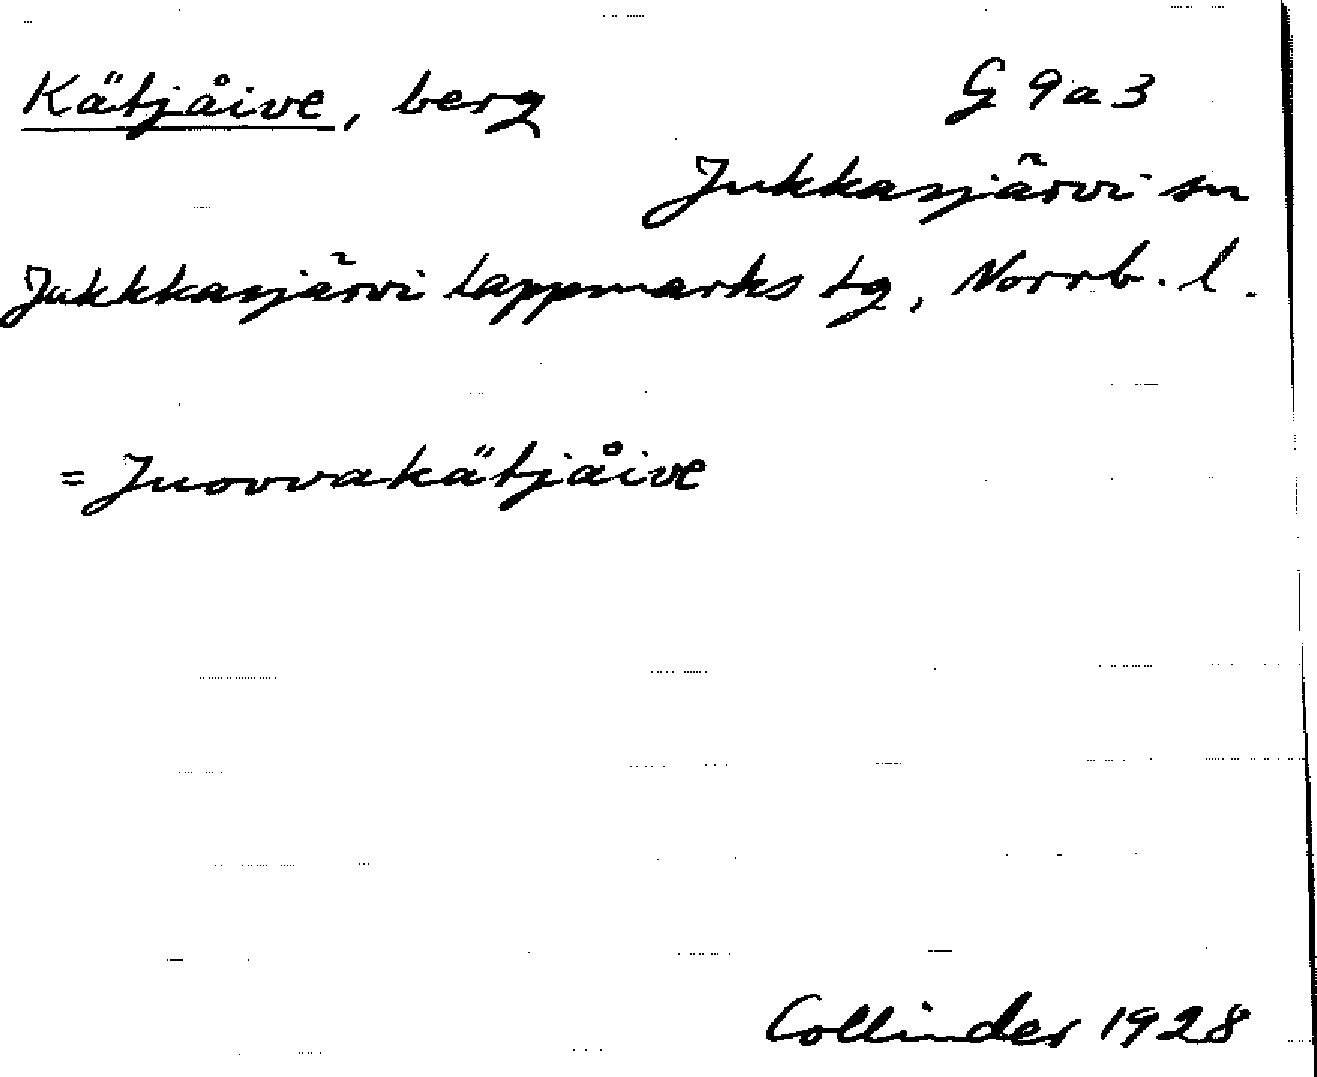 Kätjåive, berg G 9a3
Jukkasjärvi sn
Jukkkasjärvi lappmarks tg, Norrb. l.
= Juovvakätjåive
Collinder 1928